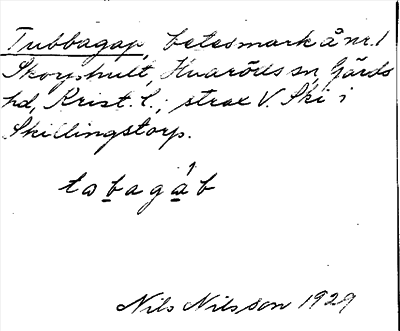 Tubbagap, betesmark å nr. 1
Skorphult, Hvaröds sn, Gärds
hd, Krist. l.; strax V. Ski i
Skillingstorp.
tobagáb
Nils Nilsson 1929